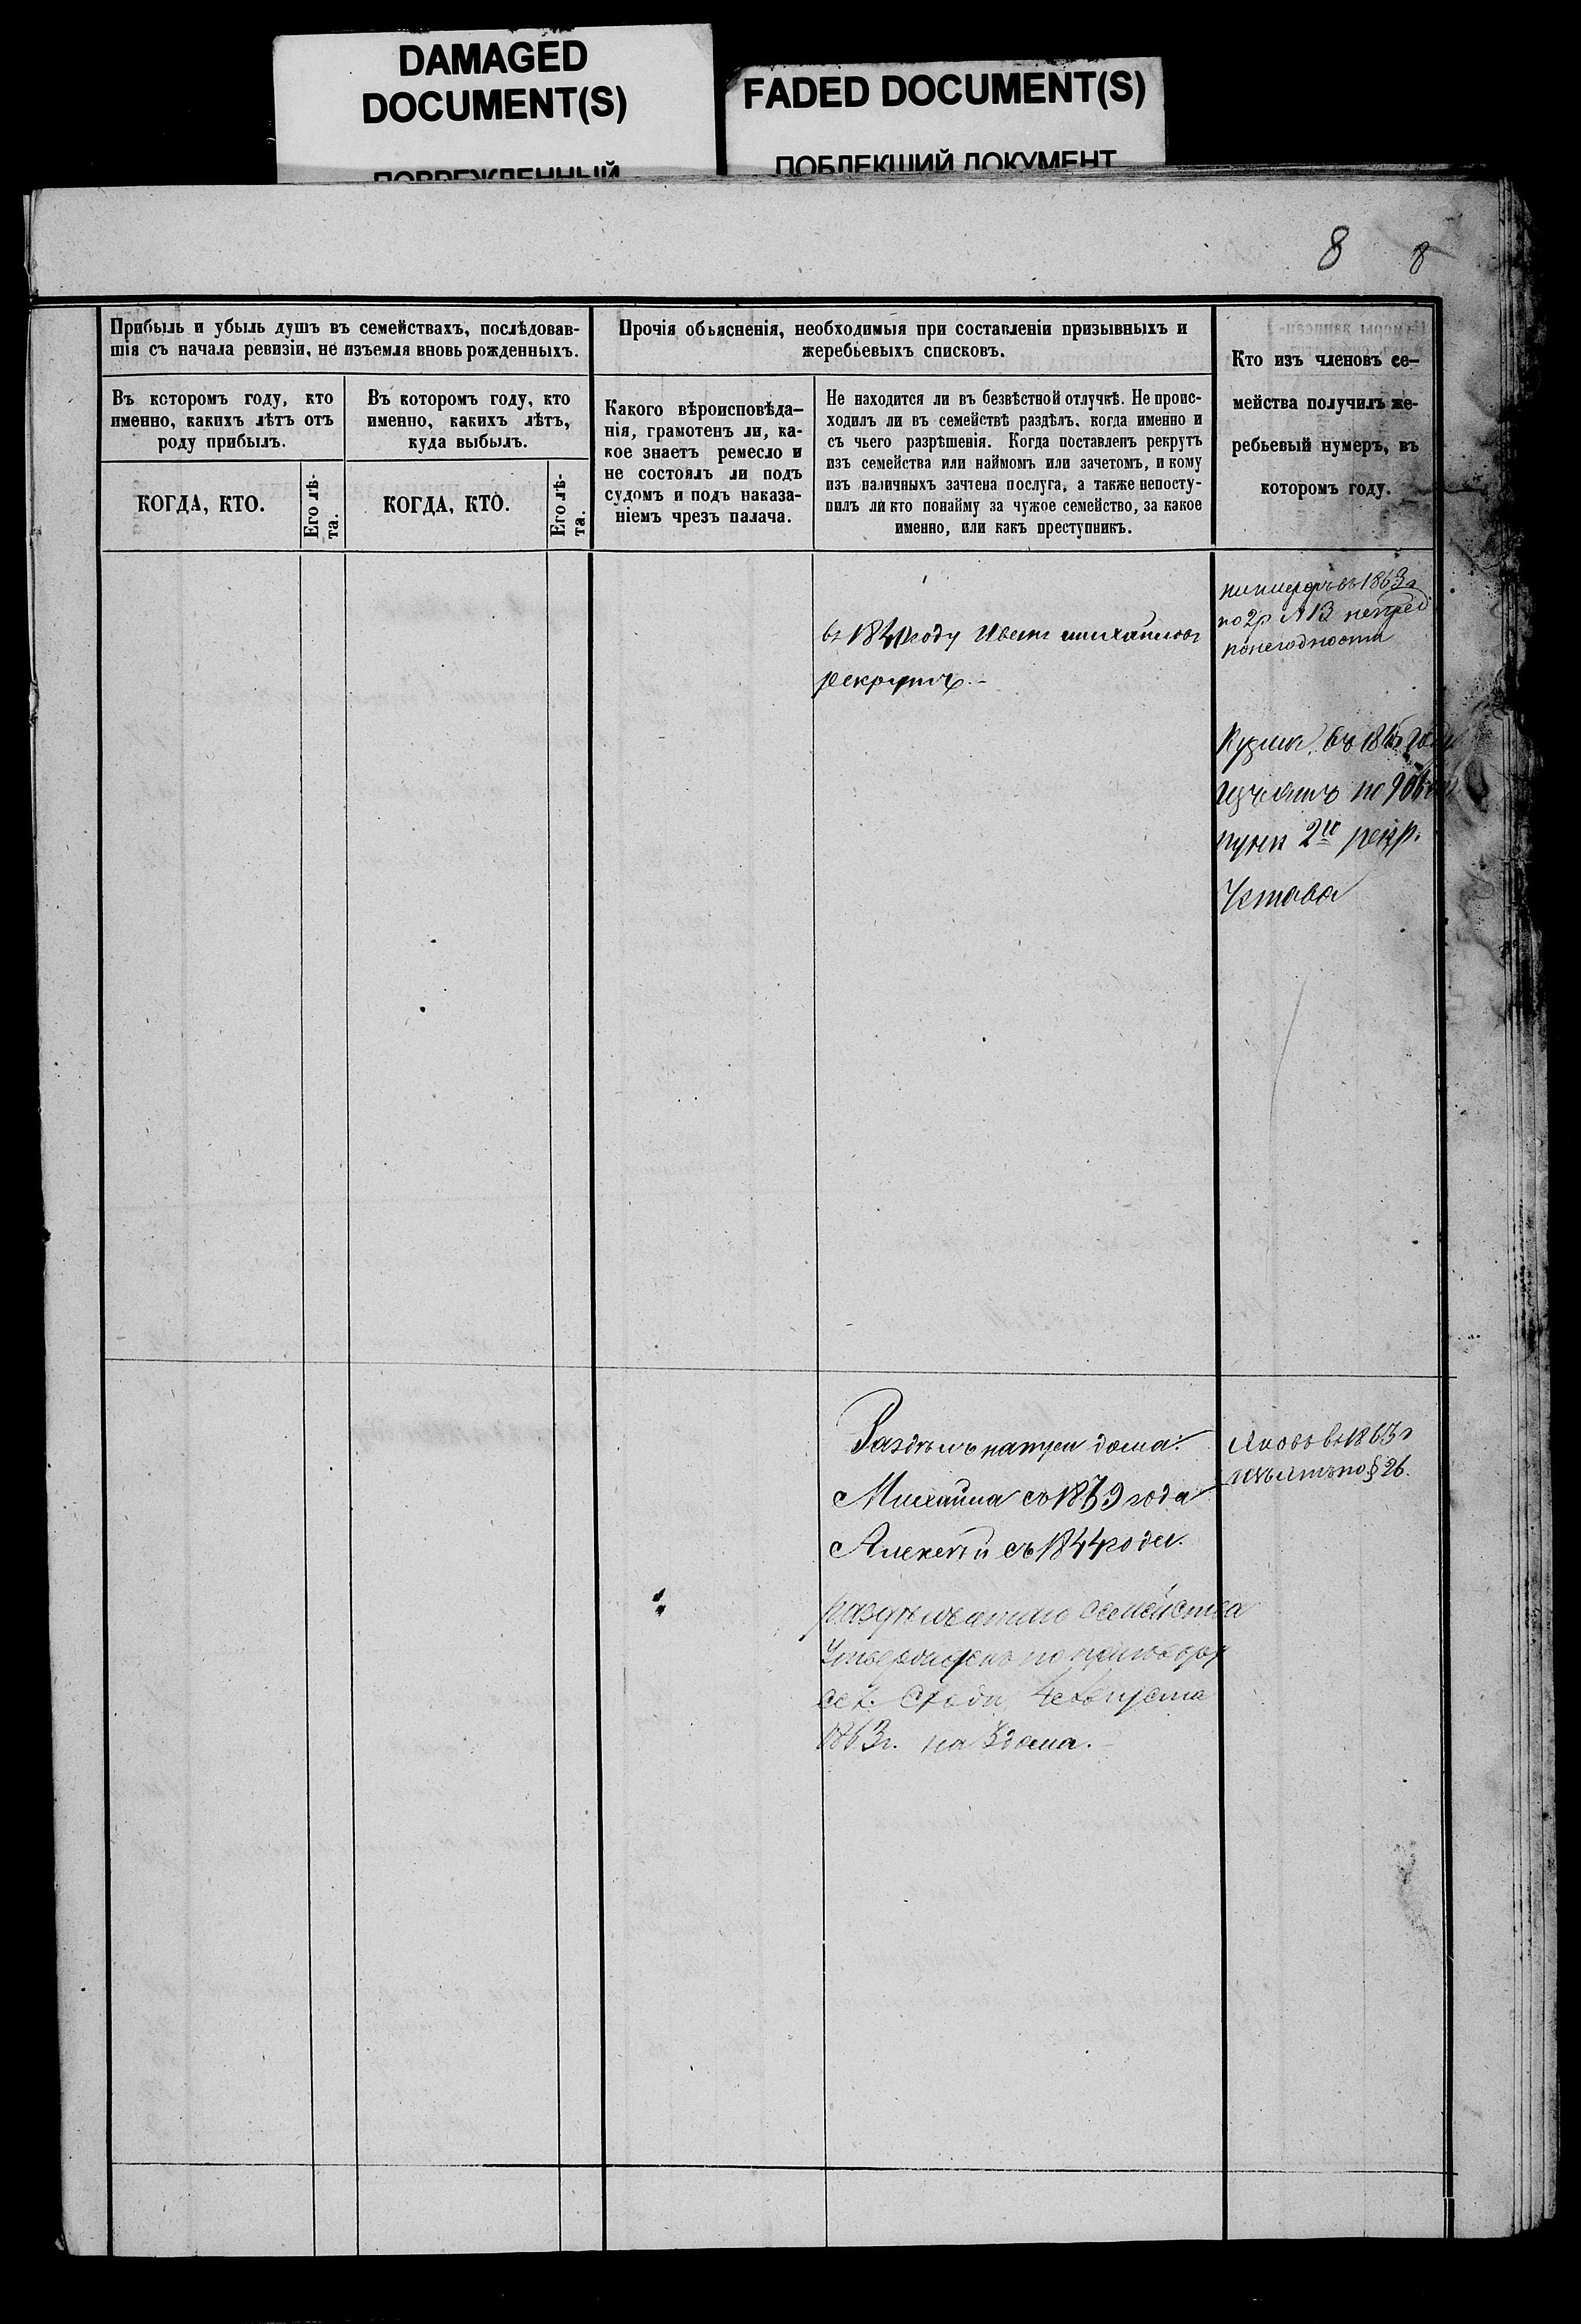 DAMAGED
DOCUMENT(S)
ПОВРЕЖДЕННЫЙ
FADED DOCUMENT(S)
ПОБЛЕКШИЙ ДОКУМЕНТ
8 8
Прибыль и убыль душъ въ семействахъ, послѣдовав-
шія съ начала ревизіи, не изъемля вновь рожденныхъ.
Въ котоpомъ году, кто
именно, какихъ лѣтъ отъ
роду прибылъ.
КОГДА, КТО.
Его лѣ-
та.
Въ которомъ году, кто
именно, какихъ лѣтъ,
куда выбылъ.
КОГДА, КТО.
Его лѣ-
та.
Прочія обьясненія, необходимыя при составленіи призывныхъ и
жеребьевыхъ списковъ.
Какого вѣроисповѣда-
нія, грамотенъ ли, ка-
кое знаетъ ремесло и
не состоялъ ли подъ
судомъ и подъ наказа-
ніемъ чрезъ палача.
Не находится ли въ безвѣстной отлучкѣ. Не проис-
ходилъ ли въ семействѣ раздѣлъ, когда именно и
съ чьего разрѣшенія. Когда поставленъ рекрутъ
изъ семейства или наймомъ или зачетомъ, и кому
изъ наличныхъ зачтена послуга, а также непосту-
пилъ ли кто понайму за чужое семейство, за какое
именно, или какъ преступникъ.
Кто изъ членовъ се-
мейства получилъ же-
ребьевый нумеръ, въ
которомъ году.
въ году Иванъ михаиловъ
рекрутъ.-
въ 1863 г
по 2 р
понегодности
Кузма въ году
изъятъ по
пунк 2го рекр.
Устава
Раздѣлъ натри дома:
Михаила съ 18 9 года
Алексѣй съ 1844 года.
раздѣлъ этаго семейства
Утвержденъ по приговору
сел. Схода Августа
1863 г. на 3 дома.-
Яковъ въ 1863 г
изъятъ по § 26.